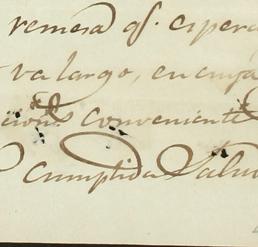 remesa qe. espera
va largo, en cuya
cions conveniente
cumplida Salu